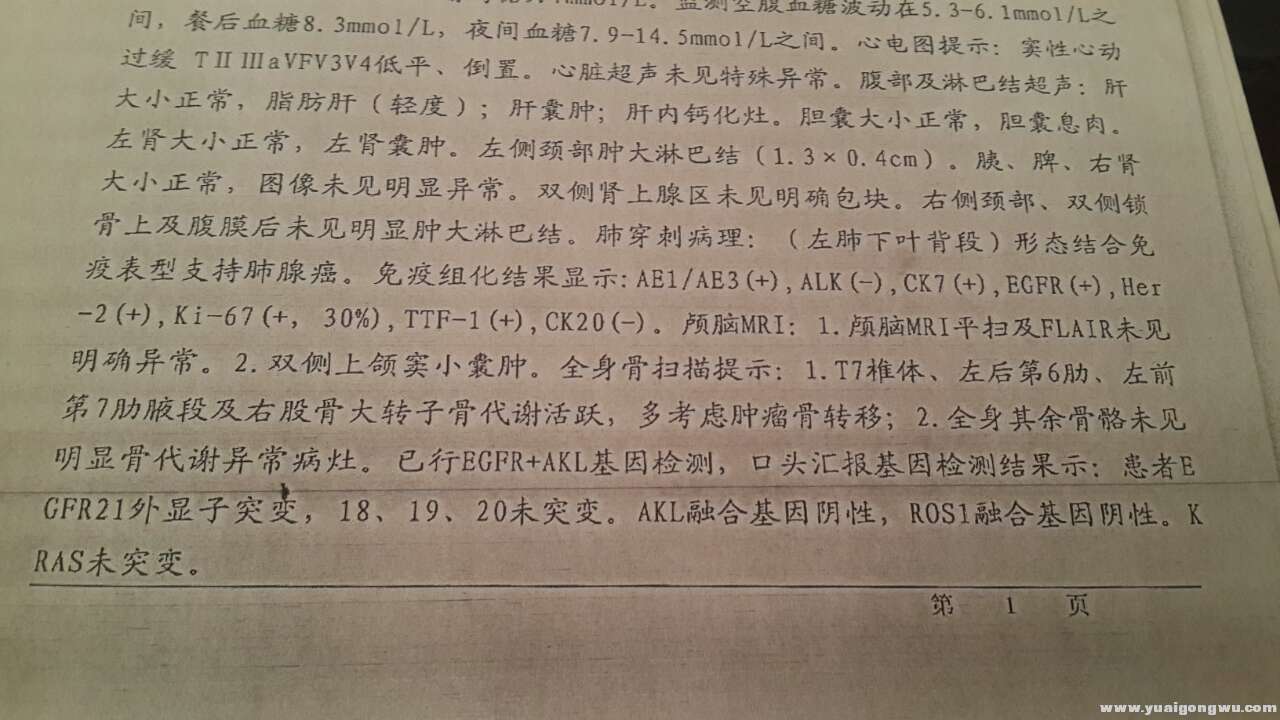 mmol/L。监测空腹血糖波动在5.3-6.1mmol/L之
间，餐后血糖8.3mmol/L，夜间血糖7.9-14.5mmol/L之间。心电图提示：窦性心动
过缓 TⅡⅢaVFV3V4低平、倒置。心脏超声未见特殊异常。腹部及淋巴结超声：肝
大小正常，脂肪肝（轻度）；肝囊肿；肝内钙化灶。胆囊大小正常，胆囊息肉。
左肾大小正常，左肾囊肿。左侧颈部肿大淋巴结（1.3×0.4cm）。胰、脾、右肾
大小正常，图像未见明显异常。双侧肾上腺区未见明确包块。右侧颈部、双侧锁
骨上及腹膜后未见明显肿大淋巴结。肺穿刺病理：（左肺下叶背段）形态结合免
疫表型支持肺腺癌。免疫组化结果显示:AE1/AE3(+),ALK(-),CK7(+),EGFR(+),Her
-2(+),Ki-67(+, 30%),TTF-1(+),CK20(-)。颅脑MRI：1.颅脑MRI平扫及FLAIR未见
明确异常。2.双侧上颌窦小囊肿。全身骨扫描提示：1.T7椎体、左后第6肋、左前
第7肋腋段及右股骨大转子骨代谢活跃，多考虑肿瘤骨转移；2.全身其余骨骼未见
明显骨代谢异常病灶。已行EGFR+AKL基因检测，口头汇报基因检测结果示：患者E
GFR21外显子突变，18、19、20未突变。AKL融合基因阴性，ROS1融合基因阴性。K
RAS未突变。
第 1 页
www.yuaigongwu.com